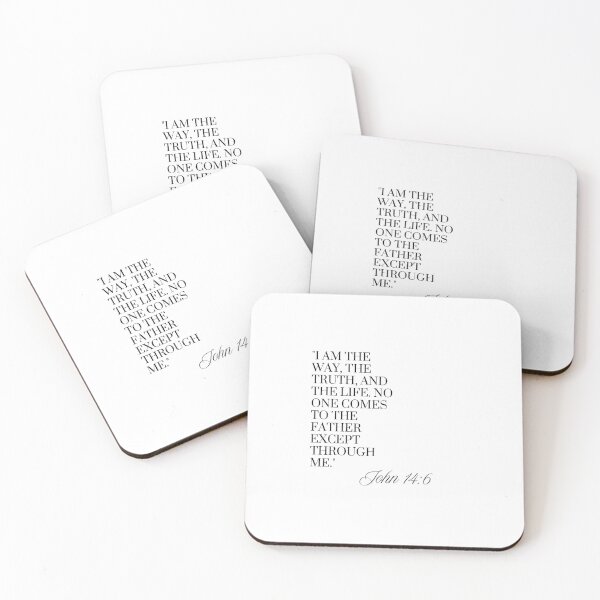 'I AM THE
WAY, THE
TRUTH, AND
THE LIFE. NO
ONE COMES
TO THE
'I AM THE
WAY, THE
TRUTH, AND
THE LIFE. NO
ONE COMES
TO THE
FATHER
EXCEPT
THROUGH
ME.'
'I AM THE
WAY, THE
TRUTH, AND
THE LIFE. NO
ONE COMES
TO THE
FATHER
EXCEPT
THROUGH
ME.'
John 14
'I AM THE
WAY, THE
TRUTH, AND
THE LIFE. NO
ONE COMES
TO THE
FATHER
EXCEPT
THROUGH
ME.'
John 14:6